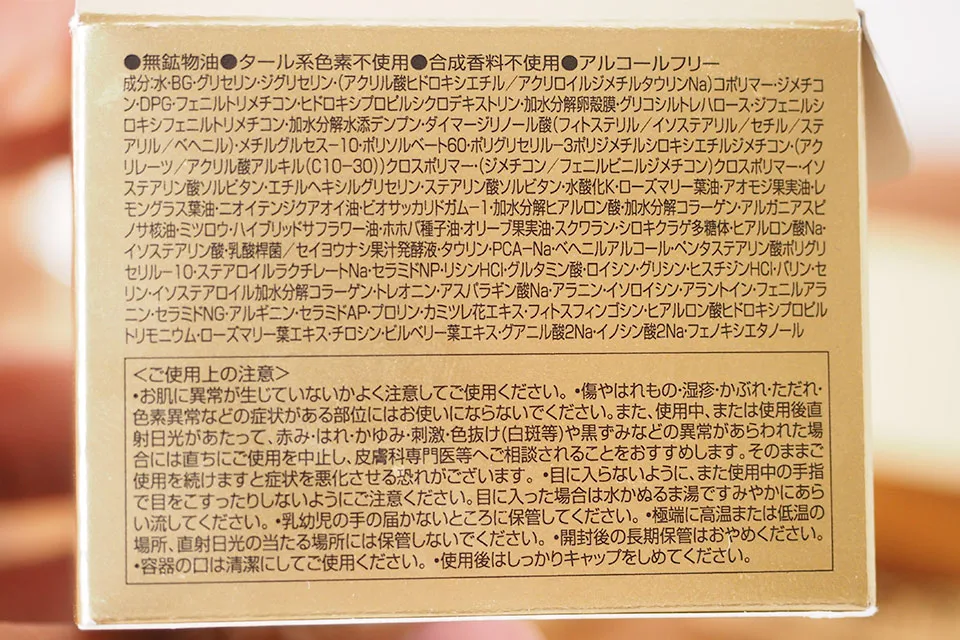 ●無鉱物油●タール系色素不使用●合成香料不使用●アルコールフリー
成分:水・BG・グリセリン・ジグリセリン・(アクリル酸ヒドロキシエチル/アクリロイルジメチルタウリンNa)コポリマー・ジメチコ
ン・DPG・フェニルトリメチコン・ヒドロキシプロピルシクロデキストリン・加水分解卵殻膜・グリコシルトレハロース・ジフェニルシ
ロキシフェニルトリメチコン・加水分解水添デンプン・ダイマージリノール酸(フィトステリル/イソステアリル/セチル/ステ
アリル/ベヘニル)・メチルグルセス-10・ポリソルベート60・ポリグリセリル-3ポリジメチルシロキシエチルジメチコン・(アク
リレーツ/アクリル酸アルキル(C10-30))クロスポリマー・(ジメチコン/フェニルビニルジメチコン)クロスポリマー・イソ
ステアリン酸ソルビタン・エチルヘキシルグリセリン・ステアリン酸ソルビタン・水酸化K・ローズマリー葉油・アオモジ果実油・レ
モングラス葉油・ニオイテンジクアオイ油・ビオサッカリドガム-1・加水分解ヒアルロン酸・加水分解コラーゲン・アルガニアスピ
ノサ核油・ミツロウ・ハイブリッドサフラワー油・ホホバ種子油・オリーブ果実油・スクワラン・シロキクラゲ多糖体・ヒアルロン酸Na・
イソステアリン酸・乳酸桿菌/セイヨウナシ果汁発酵液・タウリン・PCA-Na・ベヘニルアルコール・ペンタステアリン酸ポリグリ
セリル-10・ステアロイルラクチレートNa・セラミドNP・リシンHCl・グルタミン酸・ロイシン・グリシン・ヒスチジンHCl・バリン・セ
リン・イソステアロイル加水分解コラーゲン・トレオニン・アスパラギン酸Na・アラニン・イソロイシン・アラントイン・フェニルアラ
ニン・セラミドNG・アルギニン・セラミドAP・プロリン・カミツレ花エキス・フィトスフィンゴシン・ヒアルロン酸ヒドロキシプロピル
トリモニウム・ローズマリー葉エキス・チロシン・ビルベリー葉エキス・グアニル酸2Na・イノシン酸2Na・フェノキシエタノール
<ご使用上の注意>
・お肌に異常が生じていないかよく注意してご使用ください。・傷やはれもの・湿疹・かぶれ・ただれ・
色素異常などの症状がある部位にはお使いにならないでください。また、使用中、または使用後直
射日光があたって、赤み・はれ・かゆみ・刺激・色抜け(白斑等)や黒ずみなどの異常があらわれた場
合には直ちにご使用を中止し、皮膚科専門医等へご相談されることをおすすめします。そのままご
使用を続けますと症状を悪化させる恐れがございます。・目に入らないように、また使用中の手指
で目をこすったりしないようにご注意ください。目に入った場合は水かぬるま湯ですみやかにあら
い流してください。・乳幼児の手の届かないところに保管してください。・極端に高温または低温の
場所、直射日光の当たる場所には保管しないでください。・開封後の長期保管はおやめください。
・容器の口は清潔にしてご使用ください。・使用後はしっかりキャップをしめてください。